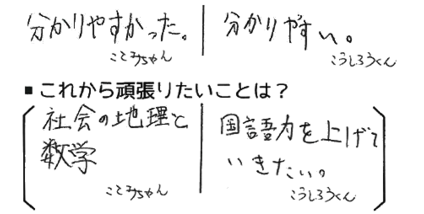 分かりやすかった。
ことみちゃん
分かりやすい。
こうしろうくん
■ これから頑張りたいことは?
社会の地理と
数学
ことみちゃん
国語力を上げて
いきたい。
こうしろうくん